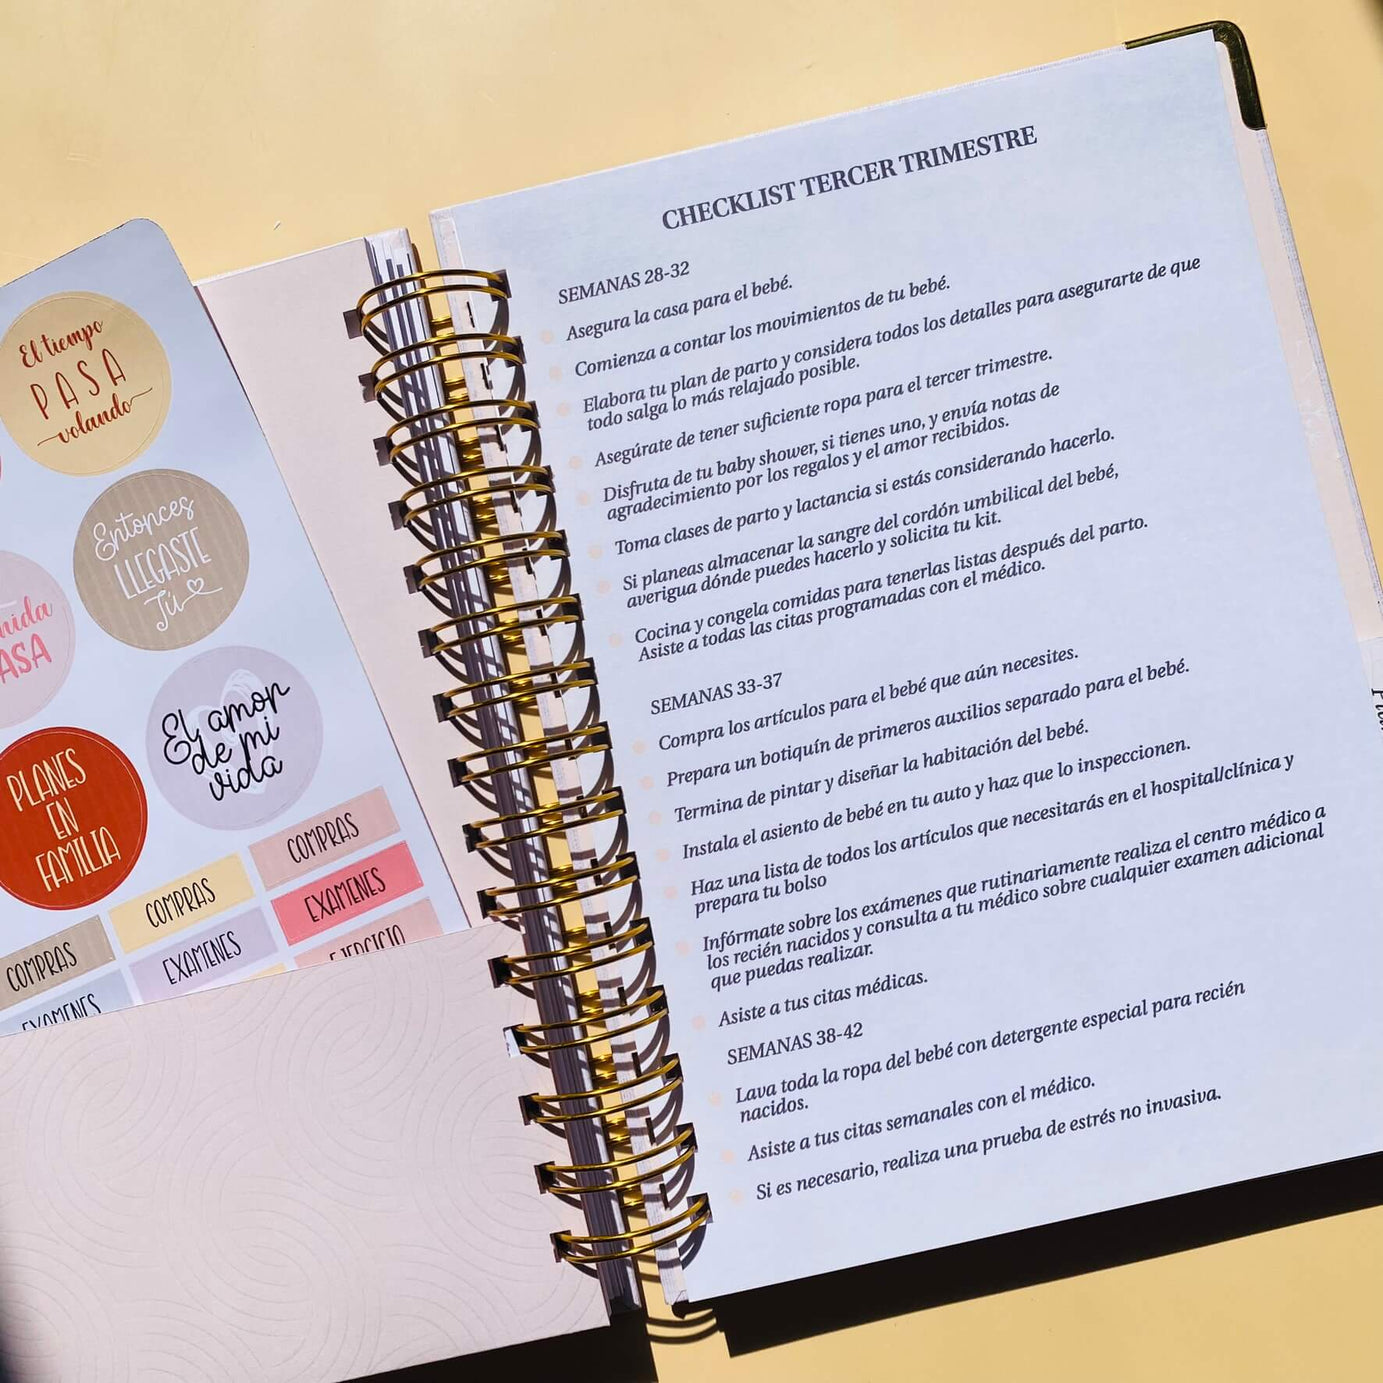 El tiempo
PASA
volando
Entonces
LLEGASTE
Tú
ASA
El amor
de mi
vida
PLANES
EN
FAMILIA
COMPRAS
COMPRAS
COMPRAS
EXAMENES
EXAMENES
EXAMENES
EJERCICIO
CHECKLIST TERCER TRIMESTRE
SEMANAS 28-32
Asegura la casa para el bebé.
Comienza a contar los movimientos de tu bebé.
Elabora tu plan de parto y considera todos los detalles para asegurarte de que
todo salga lo más relajado posible.
Asegúrate de tener suficiente ropa para el tercer trimestre.
Disfruta de tu baby shower, si tienes uno, y envía notas de
agradecimiento por los regalos y el amor recibidos.
Toma clases de parto y lactancia si estás considerando hacerlo.
Si planeas almacenar la sangre del cordón umbilical del bebé,
averigua dónde puedes hacerlo y solicita tu kit.
Cocina y congela comidas para tenerlas listas después del parto.
Asiste a todas las citas programadas con el médico.
SEMANAS 33-37
Compra los artículos para el bebé que aún necesites.
Prepara un botiquín de primeros auxilios separado para el bebé.
Termina de pintar y diseñar la habitación del bebé.
Instala el asiento de bebé en tu auto y haz que lo inspeccionen.
Haz una lista de todos los artículos que necesitarás en el hospital/clínica y
prepara tu bolso
Infórmate sobre los exámenes que rutinariamente realiza el centro médico a
los recién nacidos y consulta a tu médico sobre cualquier examen adicional
que puedas realizar.
Asiste a tus citas médicas.
SEMANAS 38-42
Lava toda la ropa del bebé con detergente especial para recién
nacidos.
Asiste a tus citas semanales con el médico.
Si es necesario, realiza una prueba de estrés no invasiva.